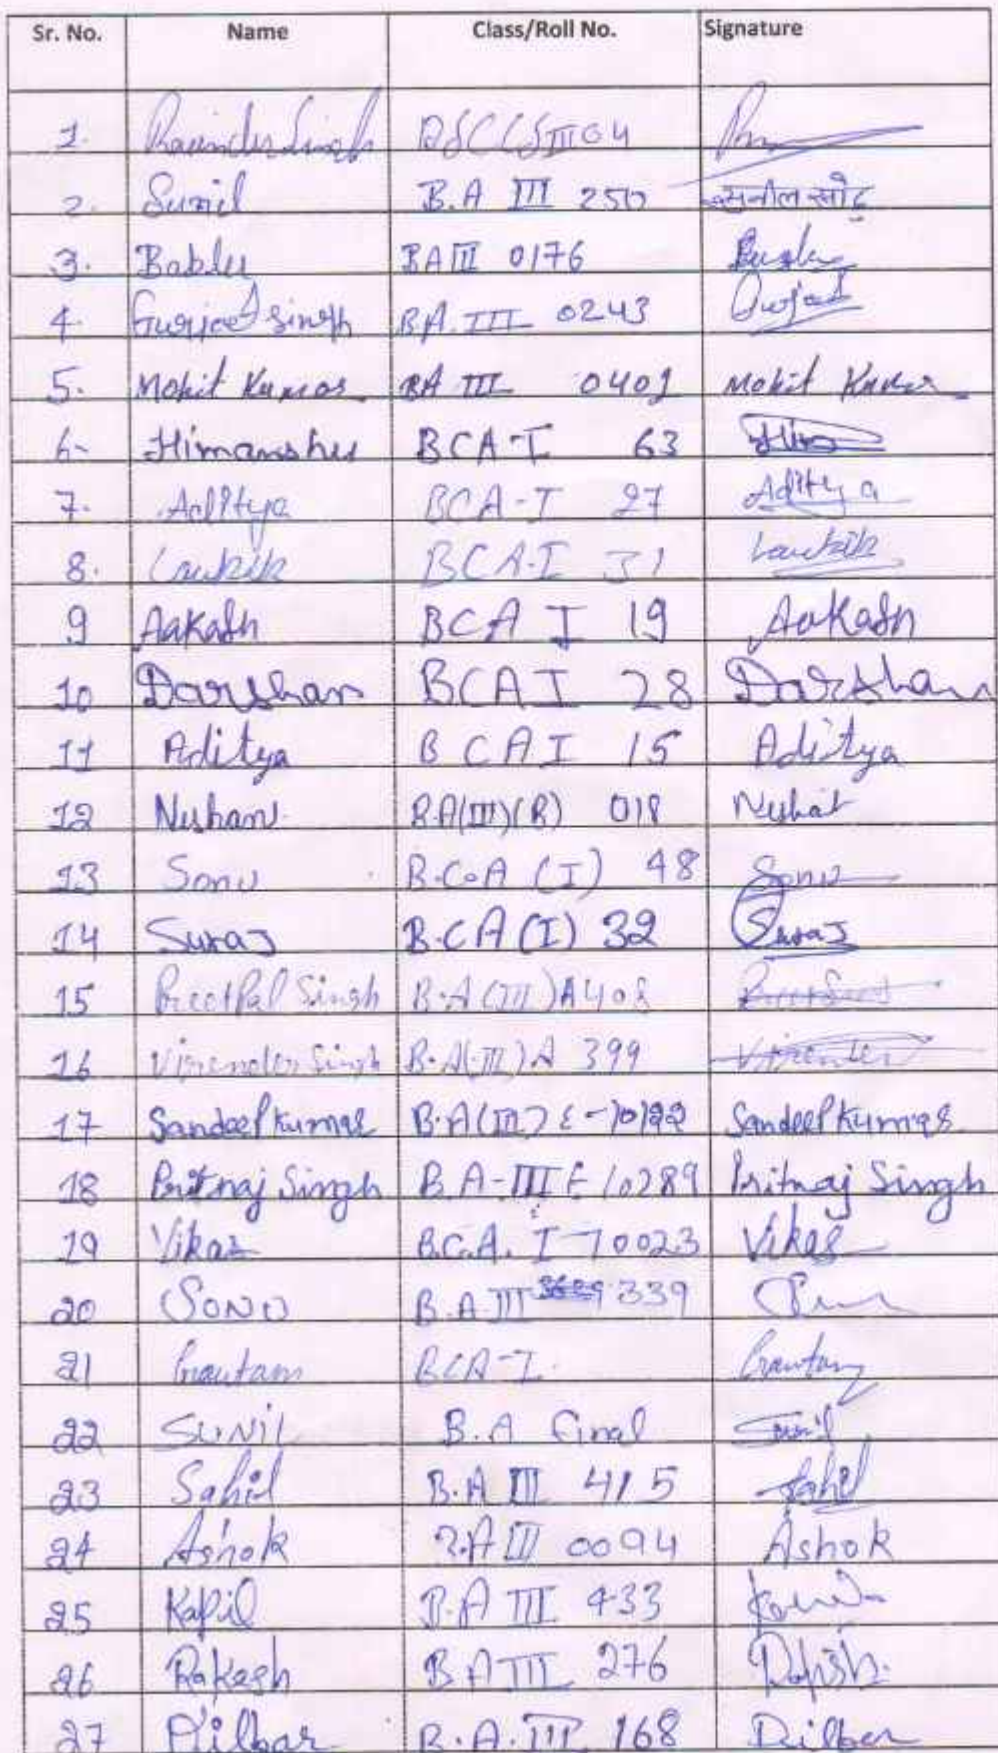 Sr. No. Name Class/Roll No. Signature
1. Ravinder Singh BSCCSIII04
2. Sunil B.A III 250
3. Bablu BAIII 0176
4. Gurjeet Singh BA.III 0243 Gurjeet
5. Mohit Kumar BA III 0401 Mohit Kumar
6- Himanshu BCA-I 63 Him
7. Aditya BCA-I 27 Aditya
8. Laukik BCA-I 31 Laukik
9 Aakash BCA I 19 Aakash
10 Darshan BCAI 28 Darshan
11 Aditya BCAI 15 Aditya
12 Nishant B.A(III)(R) 018 Nishat
13 Sonu B.C.A (I) 48 Sonu
14 Suraj B.CA(I) 32 Suraj
15 Preetpal Singh B.A(III)A408
16 Virender Singh B.A(III)A 399 Virender
17 Sandeep Kumar B.A(III) E-10122 Sandeep Kumar
18 Pritraj Singh B.A-III E 10289 Pritraj Singh
19 Vikas B.C.A. I 10023 Vikas
20 Sonu B.A III 339
21 Gautam BCA-I. Gautam
22 SUNIL B.A final Sunil
23 Sahil B.A III 415 Sahil
24 Ashok B.A III 0094 Ashok
25 Kapil B.A III 433
26 Rakesh B.A III 276
27 Dilbar B.A.III 168 Dilber